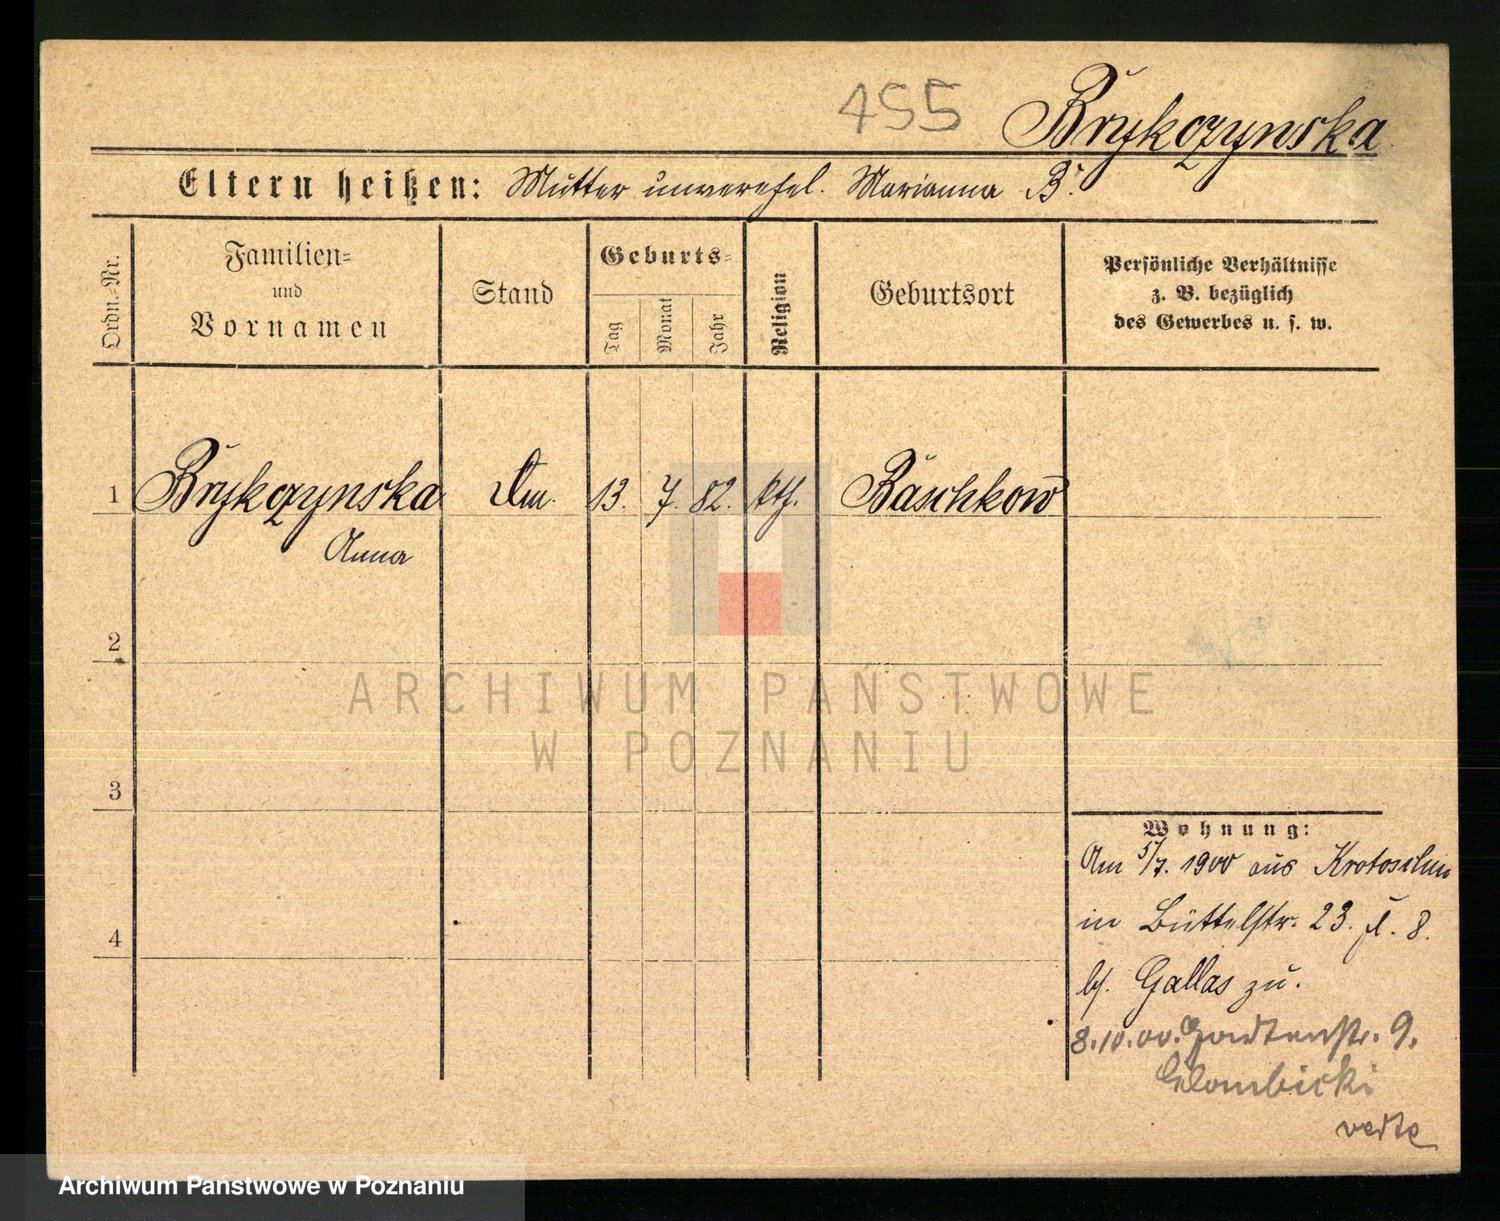 455 Brykczynska
Eltern heißen: Mutter unverehel. Marianna B.
Ordn.-Nr.
Familien-
und
Vornamen
Stand
Geburts-
Tag
Monat
Jahr
Religion
Geburtsort
Persönliche Verhältnisse
z. B. bezüglich
des Gewerbes u. s. w.
1 Brykczynska 13. 7. 82. kth. Baschkow
Anna
2
3
4
Wohnung:
Am 5/7. 1900 aus Krotoschin
in Büttelstr. 23. 8.
b/. Gallas zu.
8.10.00. 9.
Glombicki
verte
ARCHIWUM PAŃSTWOWE
W POZNANIU
Archiwum Państwowe w Poznaniu